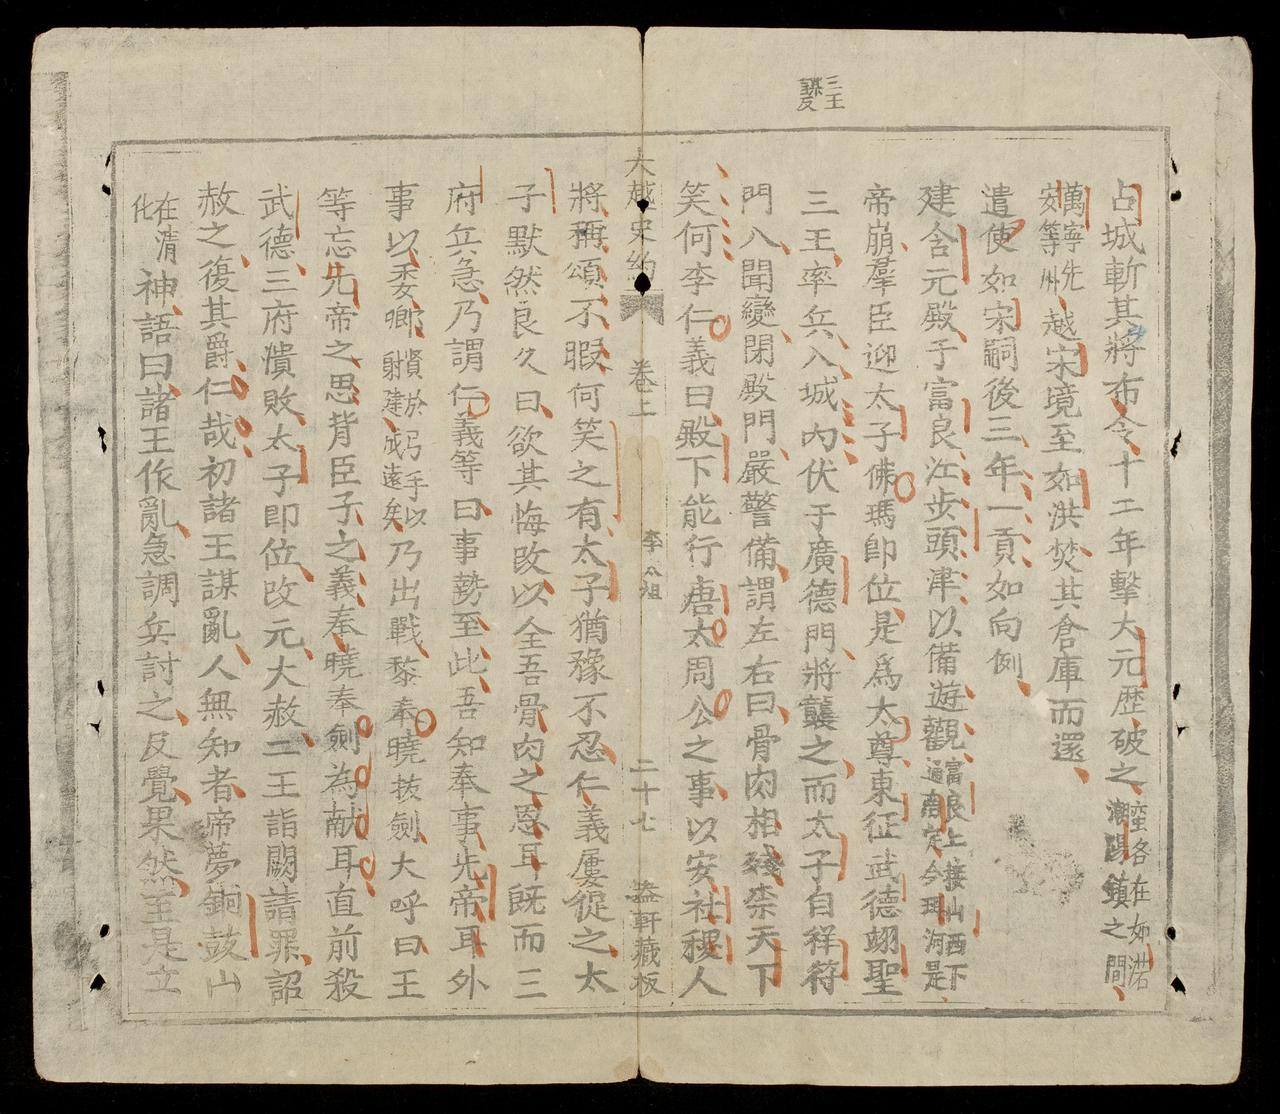 三王
謀反
占城斬其將布令十二年擊大元歴破之蛮各在如㳓
潮陽鎮之間
萬寧先
安等州越宋境至如洪焚其倉庫而還
遣使如宋嗣後三年一貢如向例
建含元殿于富良江步頭津以備遊觀富良上接山西下
通南定今珥河是
帝崩羣臣迎太子佛瑪即位是爲太尊東征武德翊聖
三王率兵入城内伏于廣德門將襲之而太子自祥符
門入聞變閉殿門嚴警備謂左右曰骨肉相殘柰天下
笑何李仁義曰殿下能行唐太周公之事以安社稷人
大越史約 卷上 李太祖 二十七 盎軒藏板
將稱頌不暇何笑之有太子猶豫不忍仁義屢從之太
子默然良久曰欲其悔改以全吾骨肉之恩耳既而三
府兵急乃謂仁義等曰事勢至此吾知奉事先帝耳外
事以委卿賢於弓手以
射建威遠矣乃出戰黎奉曉拔劍大呼曰王
等忘先帝之思背臣子之義奉曉奉劍為献耳直前殺
武德三府潰敗太子即位改元大赦二王詣闕請罪詔
赦之復其爵仁哉初諸王謀亂人無知者帝夢銅鼓山
在清
化神語曰諸王作亂急調兵討之及覺果然至是立